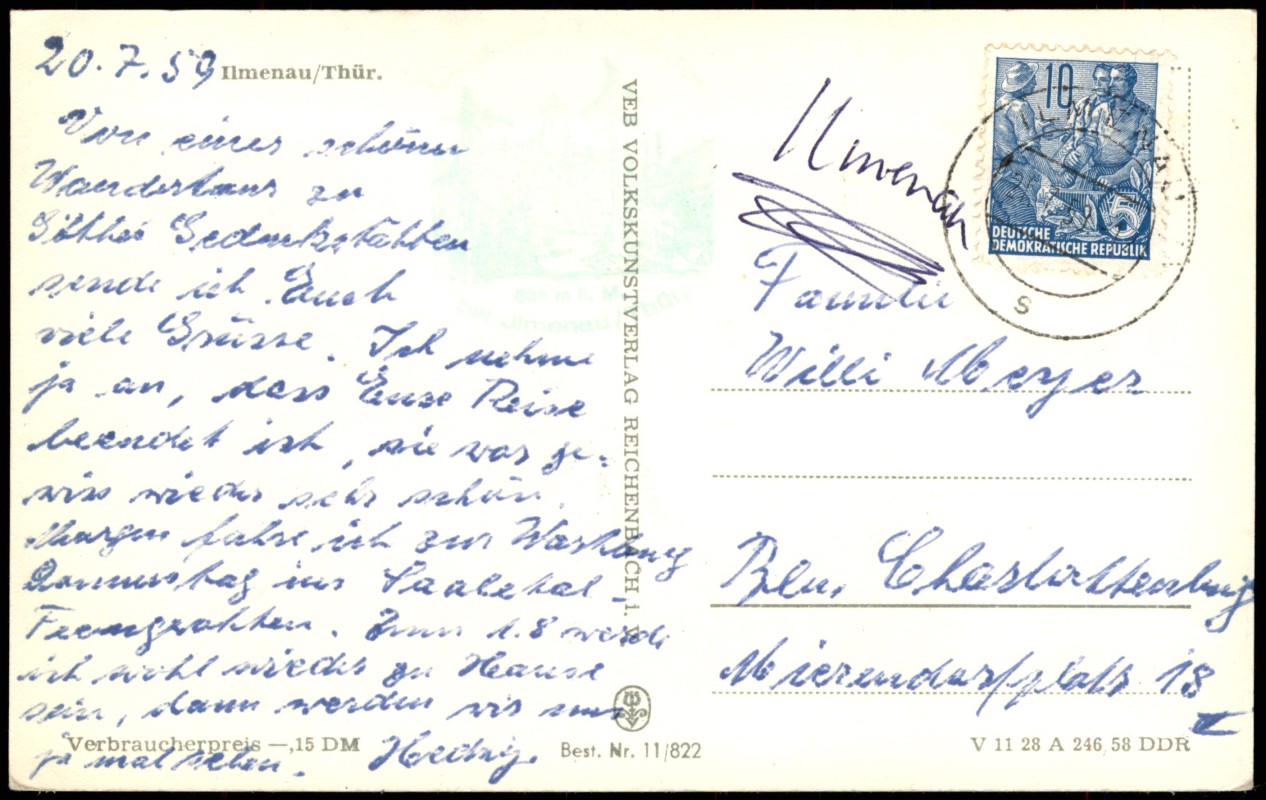 20.7.59 Ilmenau/Thür.
Von einer schönen
Wandertour zu
Göthes Gedenkstätten
sende ich Euch
viele Grüsse. Ich nehme
ja an, dass Eure Reise
beendet ist, sie war ge-
wiss wieder sehr schön.
Morgen fahre ich zur Wartburg
Donnerstag ins Saaletal-
Feengrotten. Zum 1.8 werde
ich wohl wieder zu Hause
sein, dann werden wir uns
ja mal sehen. Hedwig.
Verbraucherpreis —,15 DM
VEB VOLKSKUNSTVERLAG REICHENBACH i. V.
Best. Nr. 11/822
Ilmenau
10
5
DEUTSCHE
DEMOKRATISCHE REPUBLIK
ILMENAU
s
Familie
Willi Meyer
Bln. Charlottenburg
Mierendorfplatz 18
II
V 11 28 A 246/58 DDR